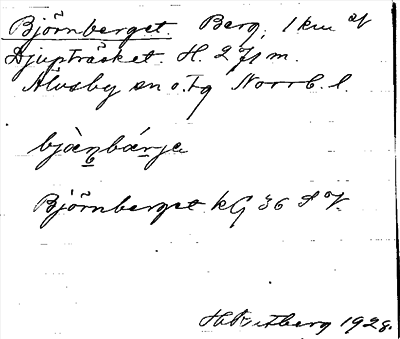 Björnberget. Berg, 1 km V
Djupträsket. H. 271 m.
Älvsby sn o. tg Norrb. l.
bjànbárje
Björnberget kG 36 S V.
1928.